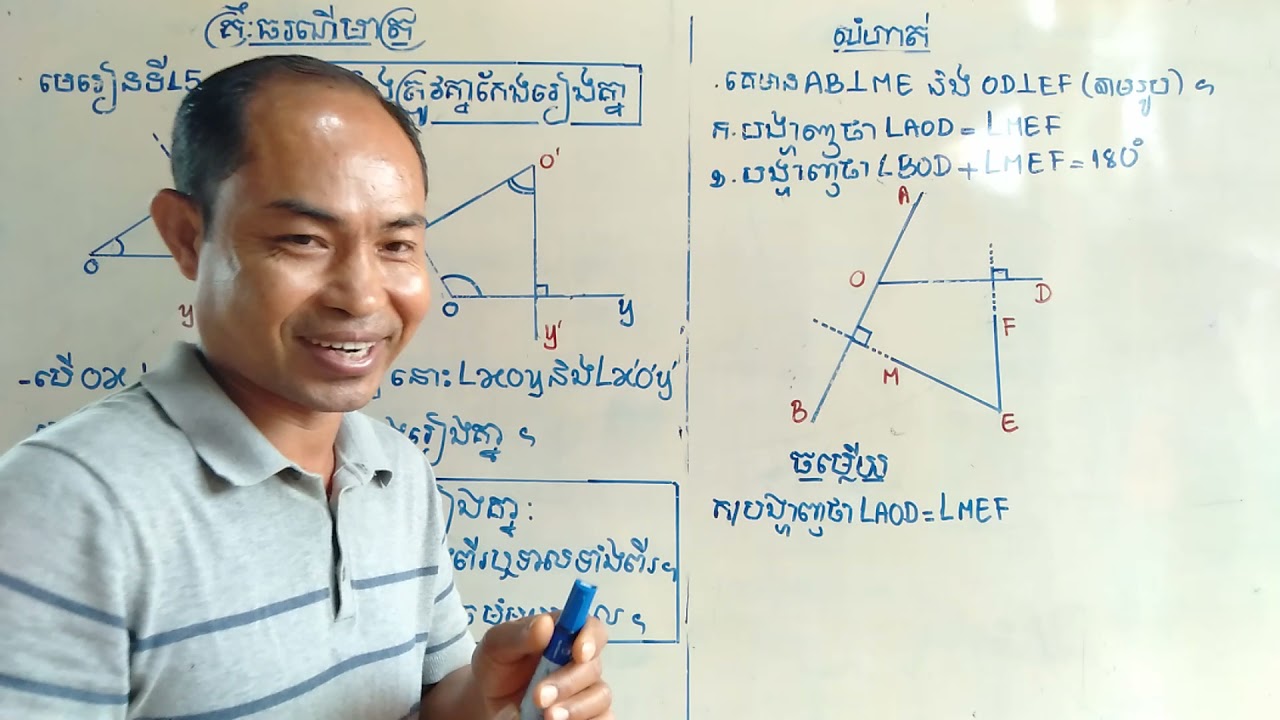 គ្រឹះធរណីមាត្រ
មេរៀនទី15
ត្រូវគ្នាកែងរៀងគ្នា
O'
O
O
y
y
y'
-បើ Ox
នោះ ∠xOy និង ∠x'O'y'
រៀងគ្នា ។
រៀងគ្នា:
ពីរឬទាលទាំងពីរ។
លំហាត់
.គេមាន AB⊥ME និង OD⊥EF (តាមរូប) ។
ក.បង្ហាញថា ∠AOD = ∠MEF
ខ.បង្ហាញថា ∠BOD + ∠MEF = 180°
A
O
D
F
M
B
E
ចម្លើយ
ក/បង្ហាញថា ∠AOD = ∠MEF